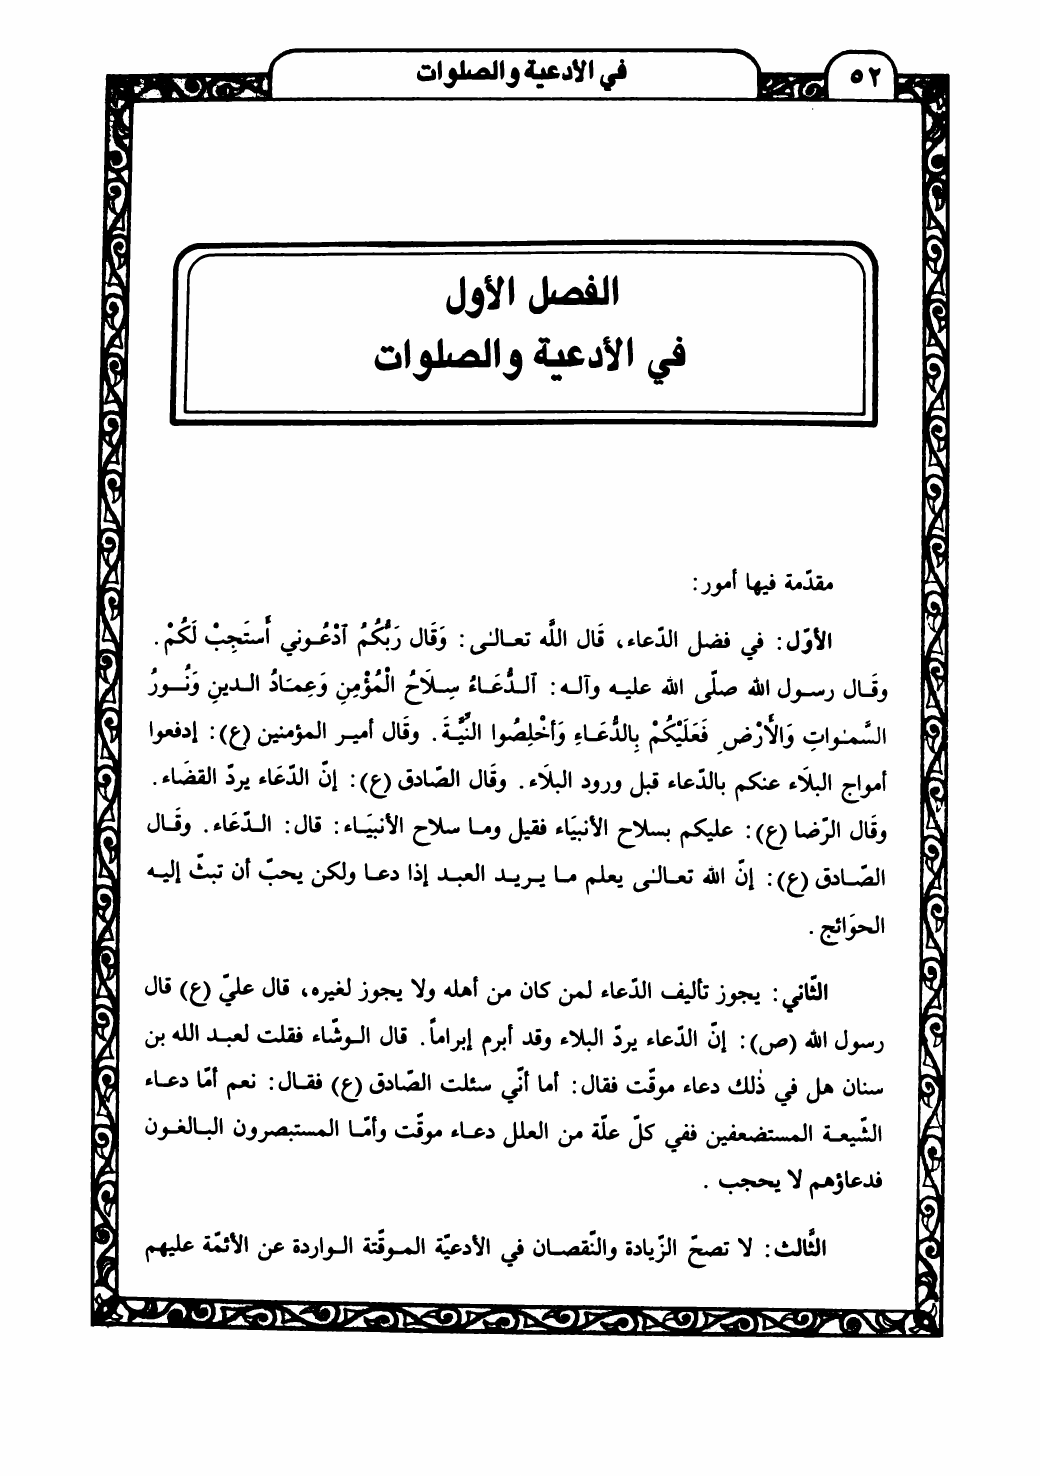 ٥٢
في الأدعية والصلوات
الفصل الأول
في الأدعية والصلوات
مقدّمة فيها أمور:
الأوّل: في فضل الدّعاء، قَال اللَّه تعـالى: وَقَال رَبُّكُمُ ٱدْعُـوني أَستَجِبْ لَكُمْ.
وقَـال رسـول الله صلّى الله عليـه وآلـه: ٱلـدُّعَـاءُ سِـلَاحُ الْمُؤْمِنِ وَعِمَـادُ الـدينِ وَنُـورُ
السَّمـٰواتِ وَالأَرْضِ فَعَلَيْكُمْ بِالدُّعَـاءِ وَأَخْلِصُوا النِّيَّـةَ. وقَال أميـر المؤمنين (ع): إدفعوا
أمواج البلَاء عنكم بالدّعاء قبل ورود البلَاء. وقَال الصّادق (ع): إنّ الدّعَاء يردّ القضَاء.
وقَال الرّضا (ع): عليكم بسلاح الأنبيَاء فقيل ومـا سلاح الأنبيَـاء: قال: الـدّعَاء. وقَـال
الصّـادق (ع): إنّ الله تعـالى يعلم مـا يـريـد العبـد إذا دعـا ولكن يحبّ أن تبثّ إليـه
الحوَائج.
الثّاني: يجوز تأليف الدّعاء لمن كان من أهله ولا يجوز لغيره، قال عليّ (ع) قال
رسول الله (ص): إنّ الدّعاء يردّ البلاء وقد أبرم إبراماً. قال الـوشّاء فقلت لعبـد الله بن
سنان هل في ذٰلك دعاء موقّت فقال: أما أنّي سئلت الصّادق (ع) فقـال: نعم أمّا دعـاء
الشّيعـة المستضعفين ففي كلّ علّة من العلل دعـاء موقّت وأمّـا المستبصرون البـالغـون
فدعاؤهم لا يحجب.
الثَّالث: لا تصحّ الزّيادة والنّقصـان في الأدعيّة المـوقّتة الـواردة عن الأئمّة عليهم